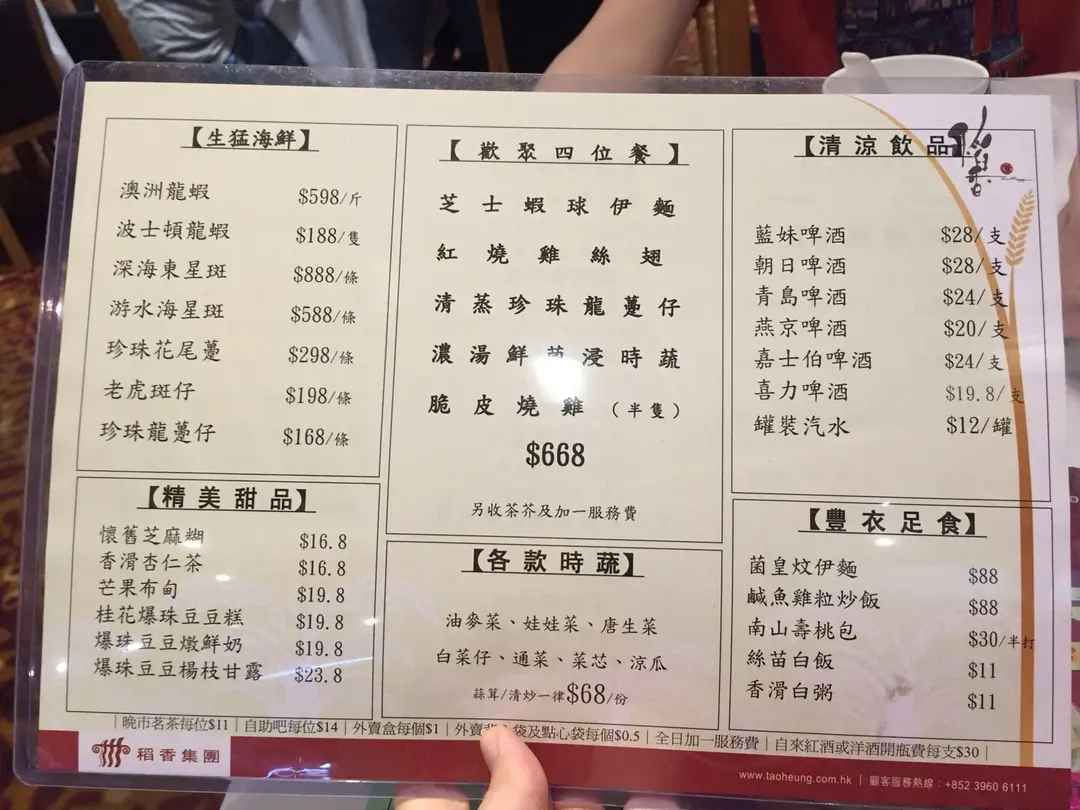 【生猛海鮮】
澳洲龍蝦 $598/斤
波士頓龍蝦 $188/隻
深海東星斑 $888/條
游水海星斑 $588/條
珍珠花尾躉 $298/條
老虎斑仔 $198/條
珍珠龍躉仔 $168/條
【精美甜品】
懷舊芝麻糊 $16.8
香滑杏仁茶 $16.8
芒果布甸 $19.8
桂花爆珠豆豆糕 $19.8
爆珠豆豆燉鮮奶 $19.8
爆珠豆豆楊枝甘露 $23.8
【歡聚四位餐】
芝士蝦球伊麵
紅燒雞絲翅
清蒸珍珠龍躉仔
濃湯鮮 浸時蔬
脆皮燒雞(半隻)
$668
另收茶芥及加一服務費
【各款時蔬】
油麥菜、娃娃菜、唐生菜
白菜仔、通菜、菜芯、涼瓜
蒜茸/清炒一律$68/份
【清涼飲品】
藍妹啤酒 $28/支
朝日啤酒 $28/支
青島啤酒 $24/支
燕京啤酒 $20/支
嘉士伯啤酒 $24/支
喜力啤酒 $19.8/支
罐裝汽水 $12/罐
【豐衣足食】
菌皇炆伊麵 $88
鹹魚雞粒炒飯 $88
南山壽桃包 $30/半打
絲苗白飯 $11
香滑白粥 $11
|晚市茗茶每位$11|自助吧每位$14|外賣盒每個$1|外賣 袋及點心袋每個$0.5|全日加一服務費|自來紅酒或洋酒開瓶費每支$30|
稻香集團
www.taoheung.com.hk | 顧客服務熱線:+852 3960 6111